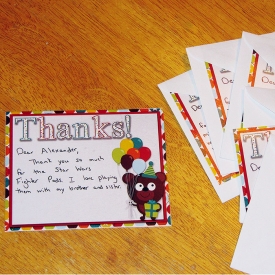 Thanks!
Dear Alexander,
Thank you so much
for the Star Wars
Fighter Pods. I love playing
them with my brother and sister.
De
De
T
D